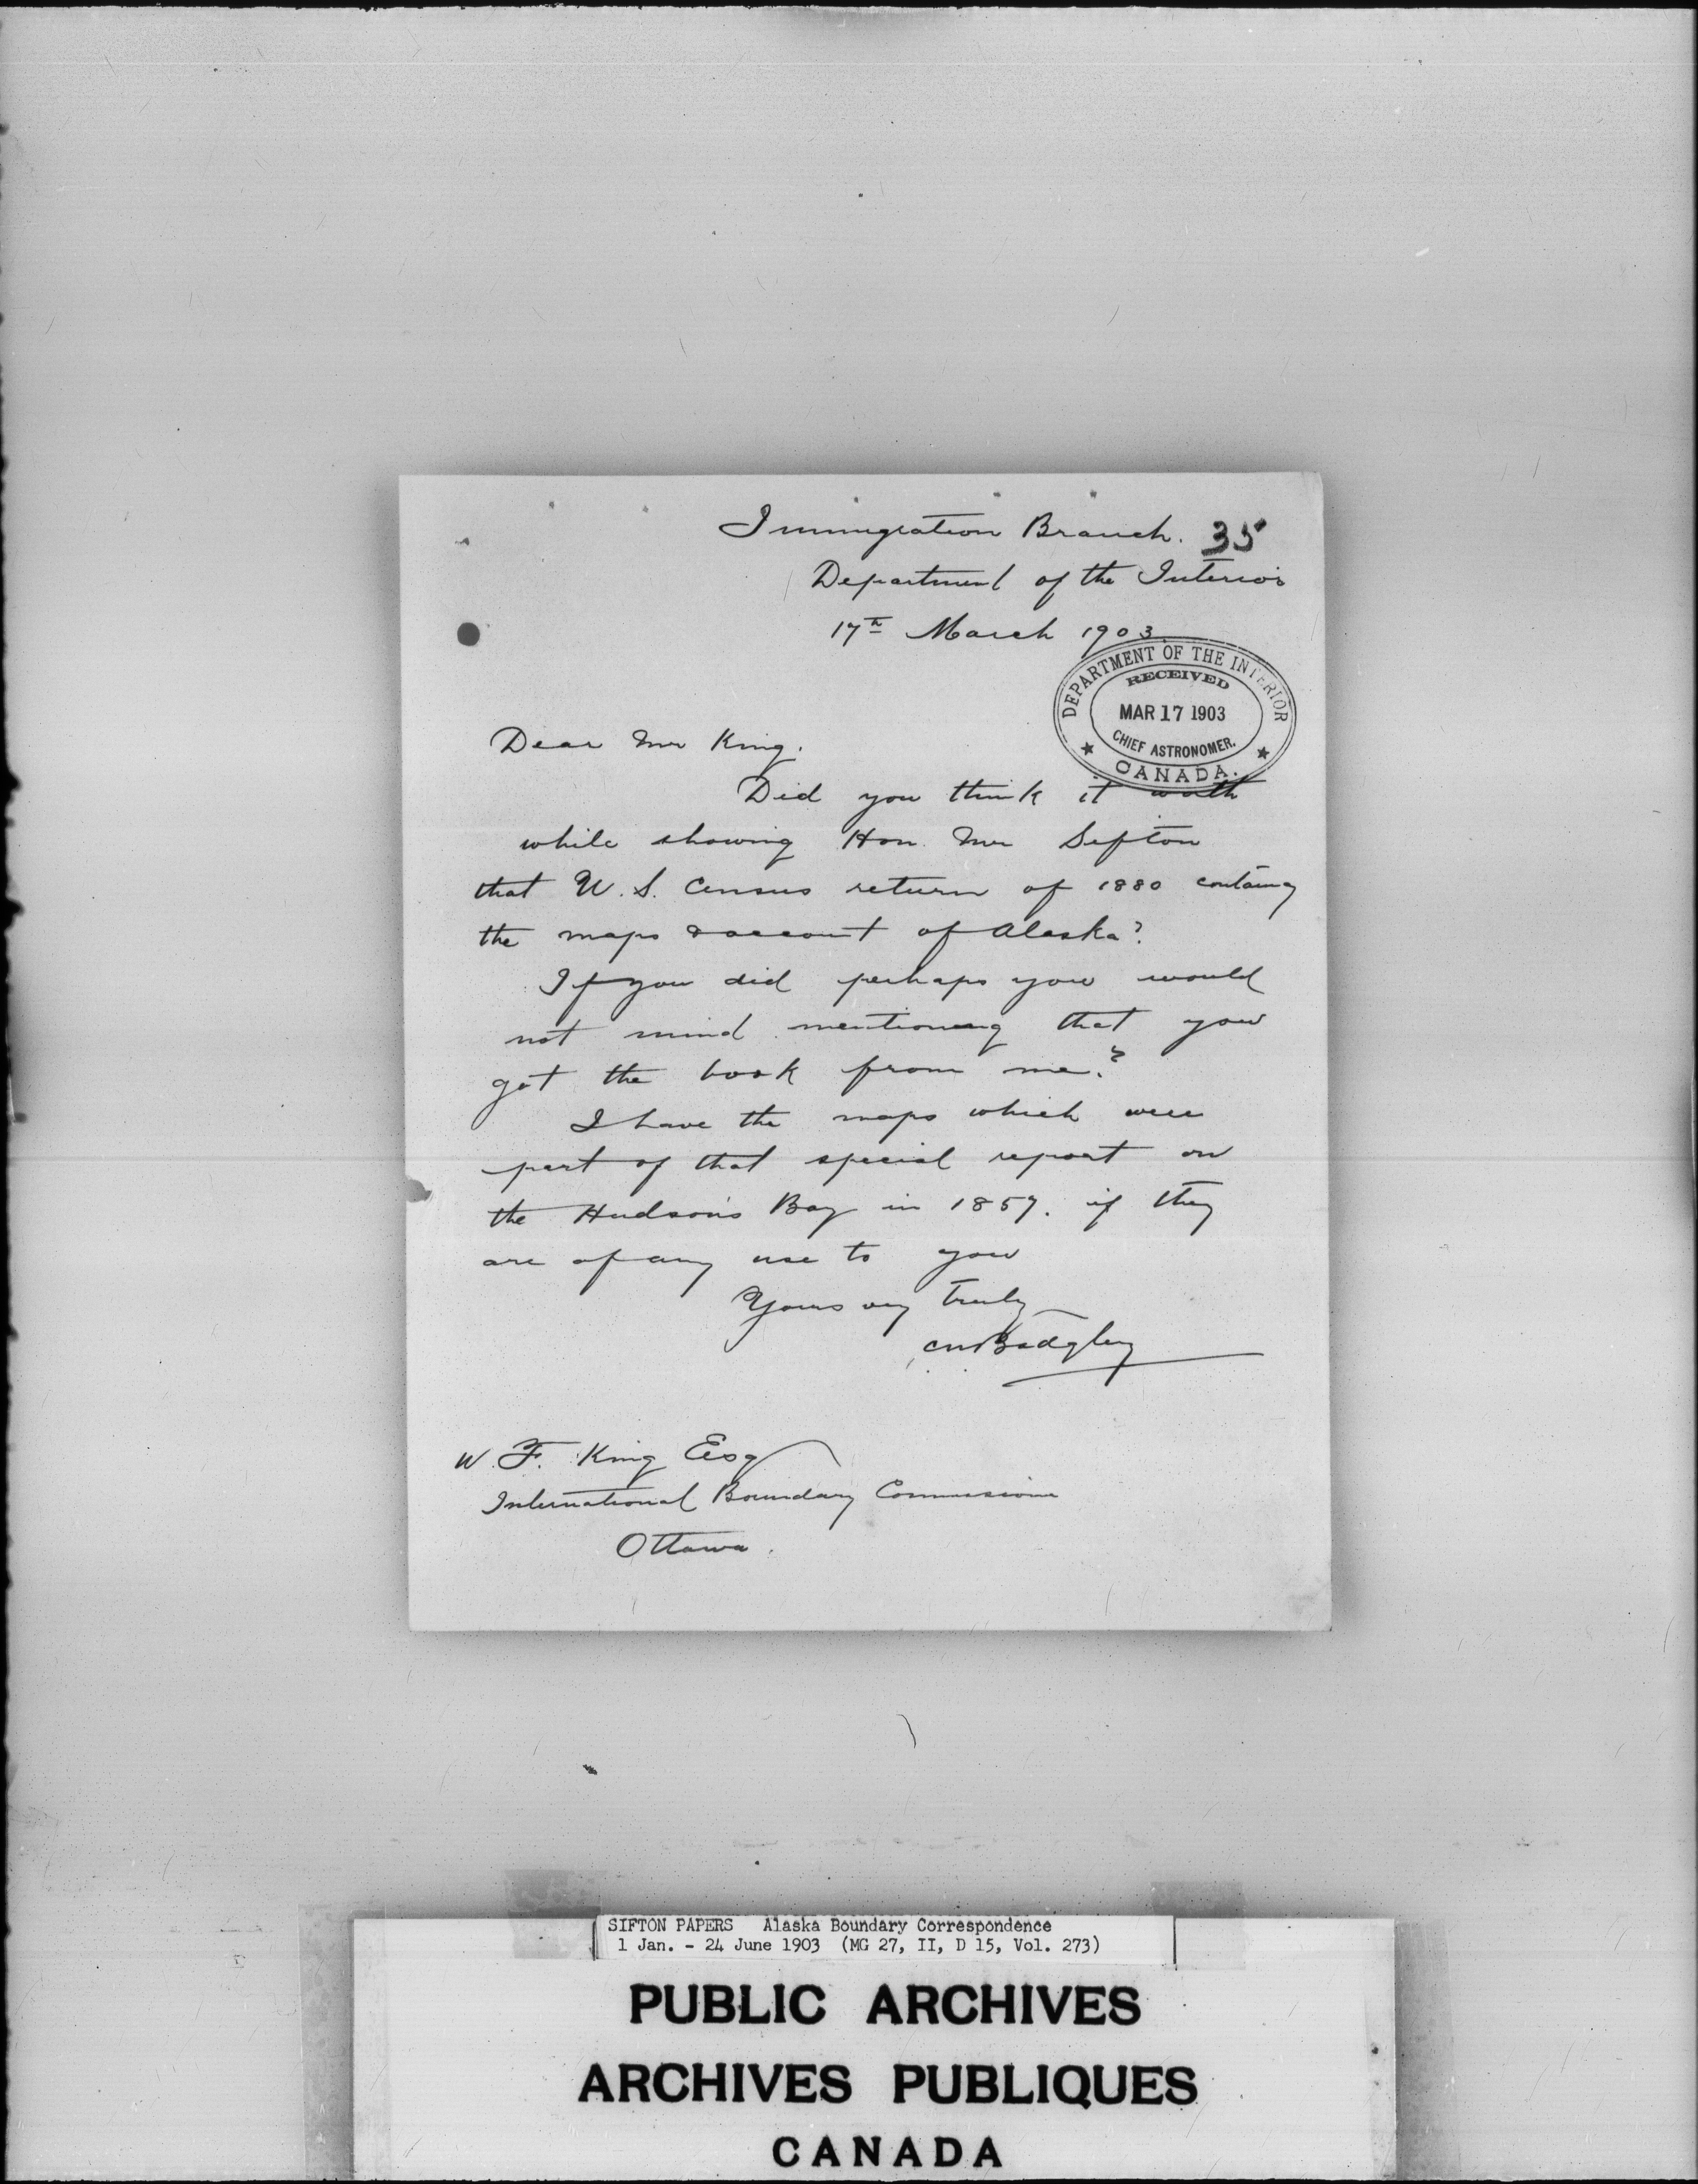 Immigration Branch. 35
Department of the Interior
17th March 1903
DEPARTMENT OF THE INTERIOR
RECEIVED
MAR 17 1903
CHIEF ASTRONOMER.
CANADA.
Dear Mr King.
Did you think it worth
while showing Hon. Mr Sifton
that U.S. Census return of 1880 containg
the maps & account of Alaska?
If you did perhaps you would
not mind mentioning that you
got the book from me?
I have the maps which were
part of that special report on
the Hudson's Bay in 1857. if they
are of any use to you
Yours very truly
Badgley
W. F. King Esq
International Boundary Commissione
Ottawa.
SIFTON PAPERS Alaska Boundary Correspondence
1 Jan. - 24 June 1903 (MG 27, II, D 15, Vol. 273)
PUBLIC ARCHIVES
ARCHIVES PUBLIQUES
CANADA